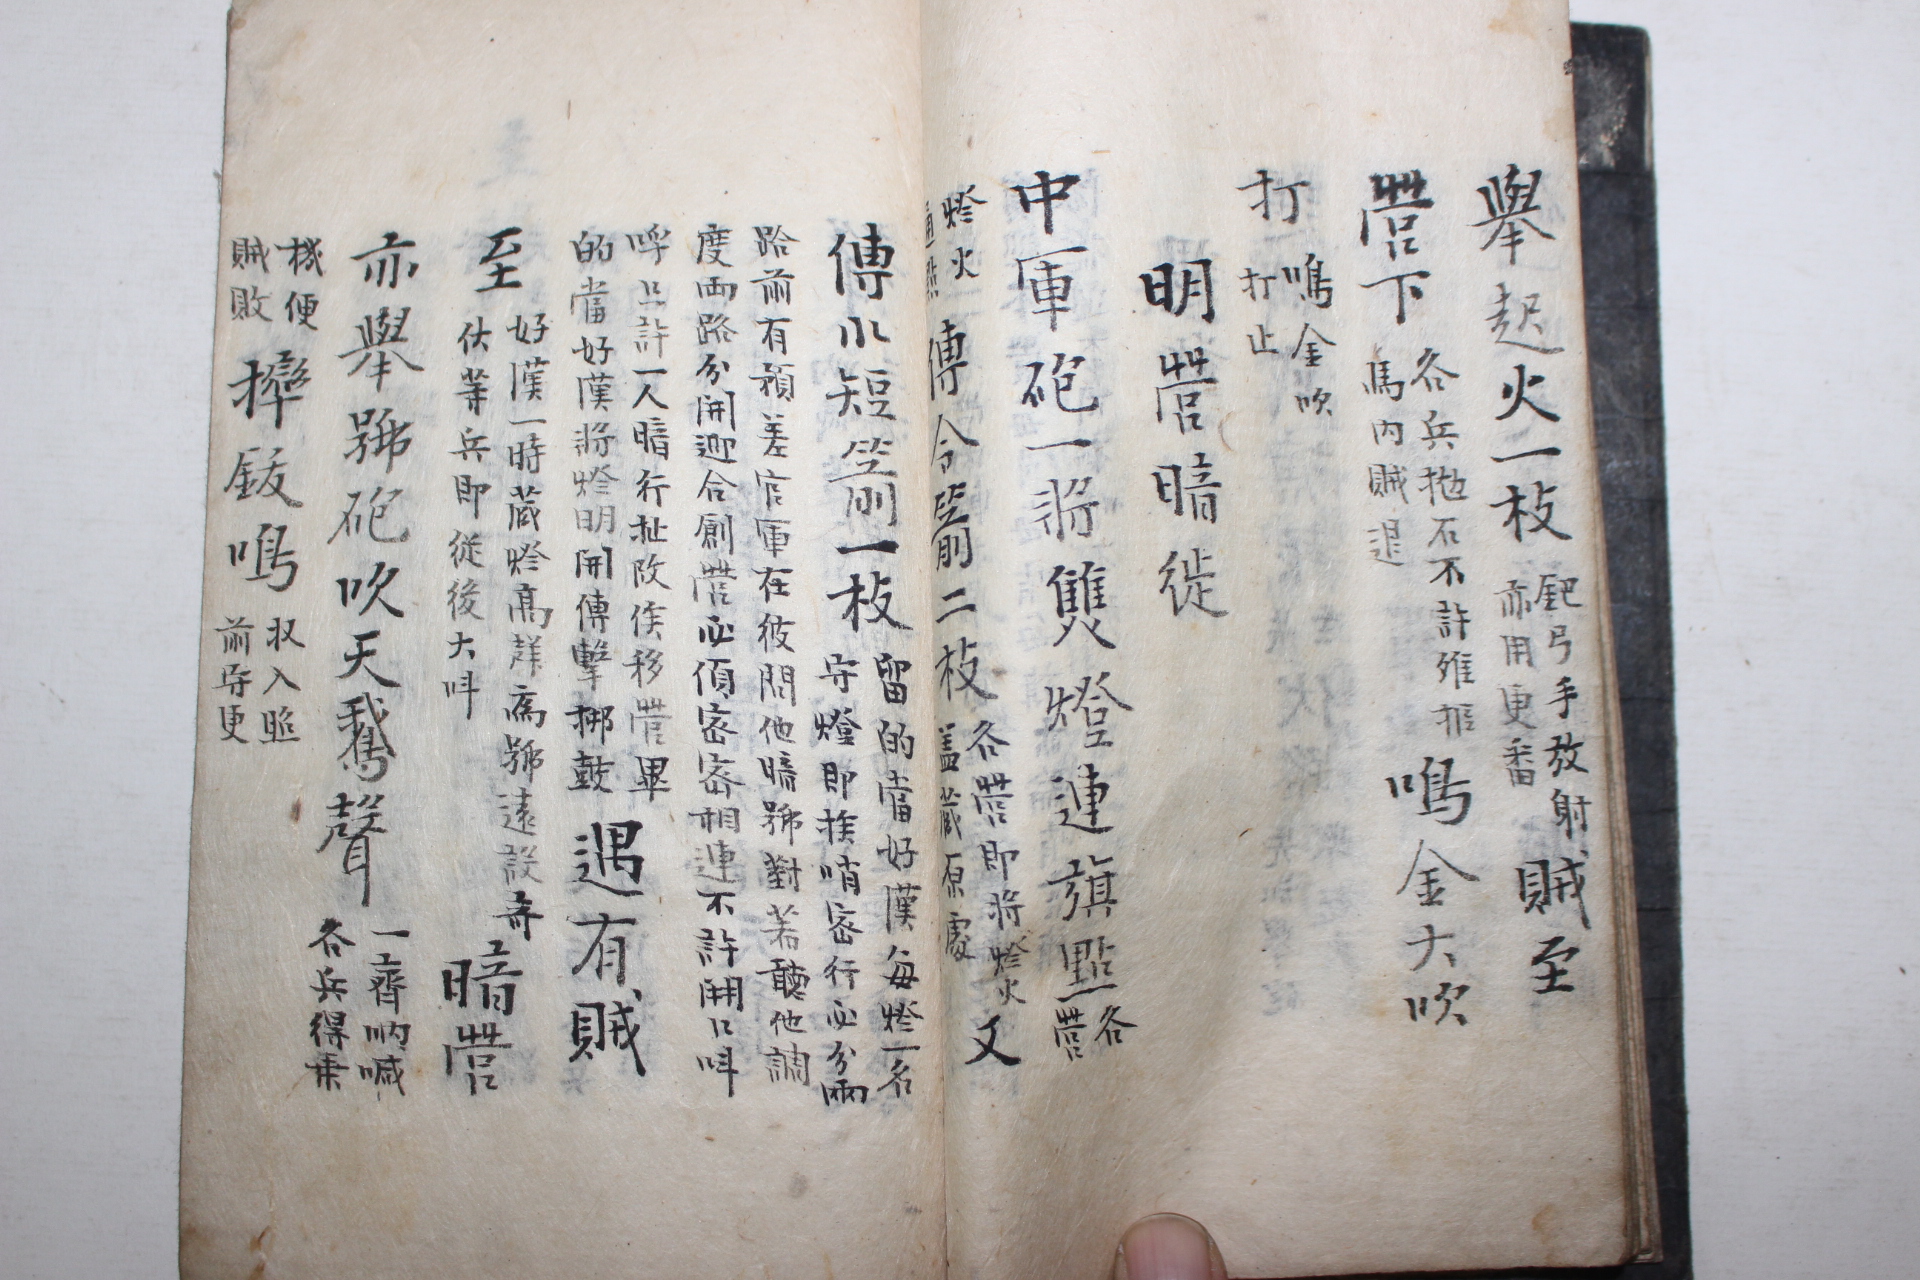 舉起火一枝 鈀弓手放射 亦用更番 賊至
營下 各兵抛石不許 馬內賊退 鳴金大吹
打 鳴金吹 打止
明營暗徙
中軍砲一將雙燈連旗點 各營
燈火 傳令箭二枝 各營即將燈火 盖藏原處 又
傳小短箭一枝 留的當好漢每燈一名 守燈即挨哨密行必分兩
路前有預差官軍在彼問他暗號對若聽他調
度两路分開迎合創營必須密密相連不許開口呌
呼只許一人暗行扯改俟移營畢
的當好漢將燈明開傳擊梆鼓 遇有賊
至 好漢一時藏燈高 為號遠設奇 伏等兵即從後大呌 暗營
亦舉號砲吹天鵞聲 一齊吶喊 各兵得乘
機便 賊敗 摔鈸鳴 収入照 前守更